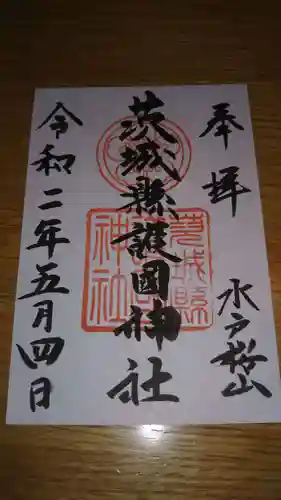 奉拝
水戸桜山
茨城縣護國神社
茨城縣護國神社
令和二年五月四日